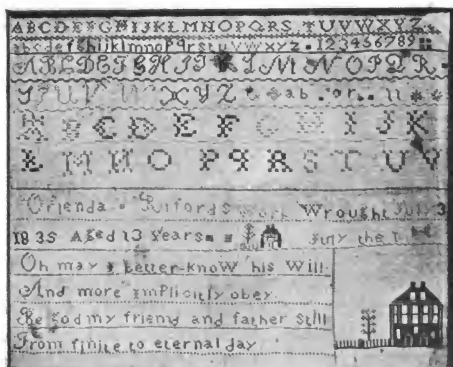 ABCDEFGHIJKLMNOPQRS TUVWXYZ
abcdefghijklmnopqrstuvwxyz 123456789
K L M N O P Q R
U X Y Z
C D E F I J K
L M N O P Q R S T U V
Orienda Rifords Work Wrought July 3
1835 Aged 13 Years July the
Oh may I better know his Will
And more implicitly obey
Be God my friend and father Still
From finite to eternal day